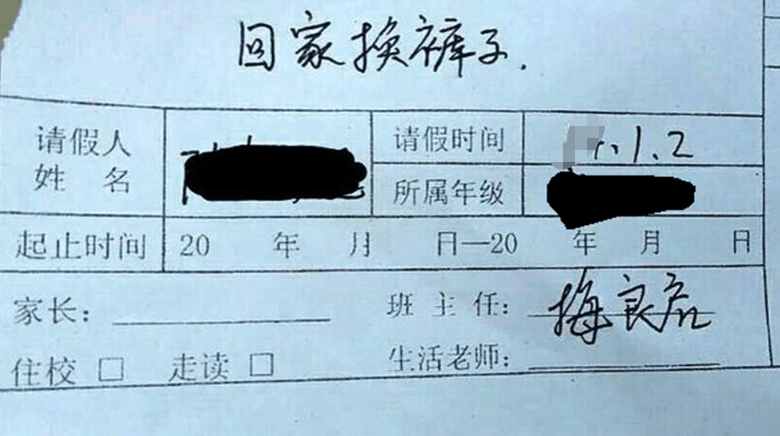 回家换裤子.
请假人姓名
请假时间 .1.2
所属年级
起止时间 20 年 月 日—20 年 月 日
家长: 班主任: 梅良君
住校 □ 走读 □ 生活老师: